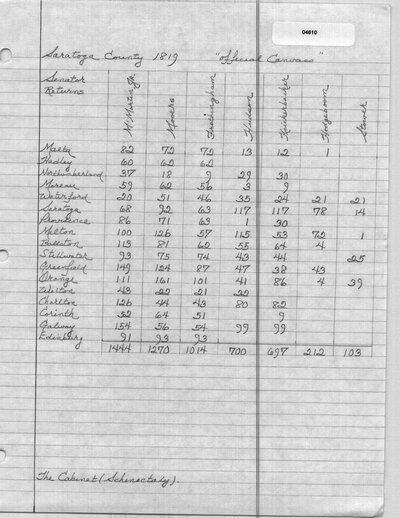 04610
Saratoga County 1819 "Official Canvass"
Senator Returns McMartin Jr. Mowers Frothingham Hudson Knickerbacker Hogeboom Stover
Malta 82 72 72 13 12 1
Hadley 60 62 62
Northumberland 37 18 9 29 30
Moreau 59 62 56 3 9
Waterford 20 51 46 35 24 21 21
Saratoga 68 92 63 117 117 78 14
Providence 86 71 63 1 30
Milton 100 126 57 115 53 72 1
Ballston 113 81 62 55 64 4
Stillwater 93 75 74 43 44 25
Greenfield 149 124 87 47 38 43
Orange 111 161 101 41 86 4 39
Wilton 43 22 21 22
Charlton 126 44 43 80 82
Corinth 32 64 51 9
Galway 154 56 54 99 99
Edinburg 91 93 93
1444 1270 1014 700 697 212 103
The Cabinet (Schenectady).